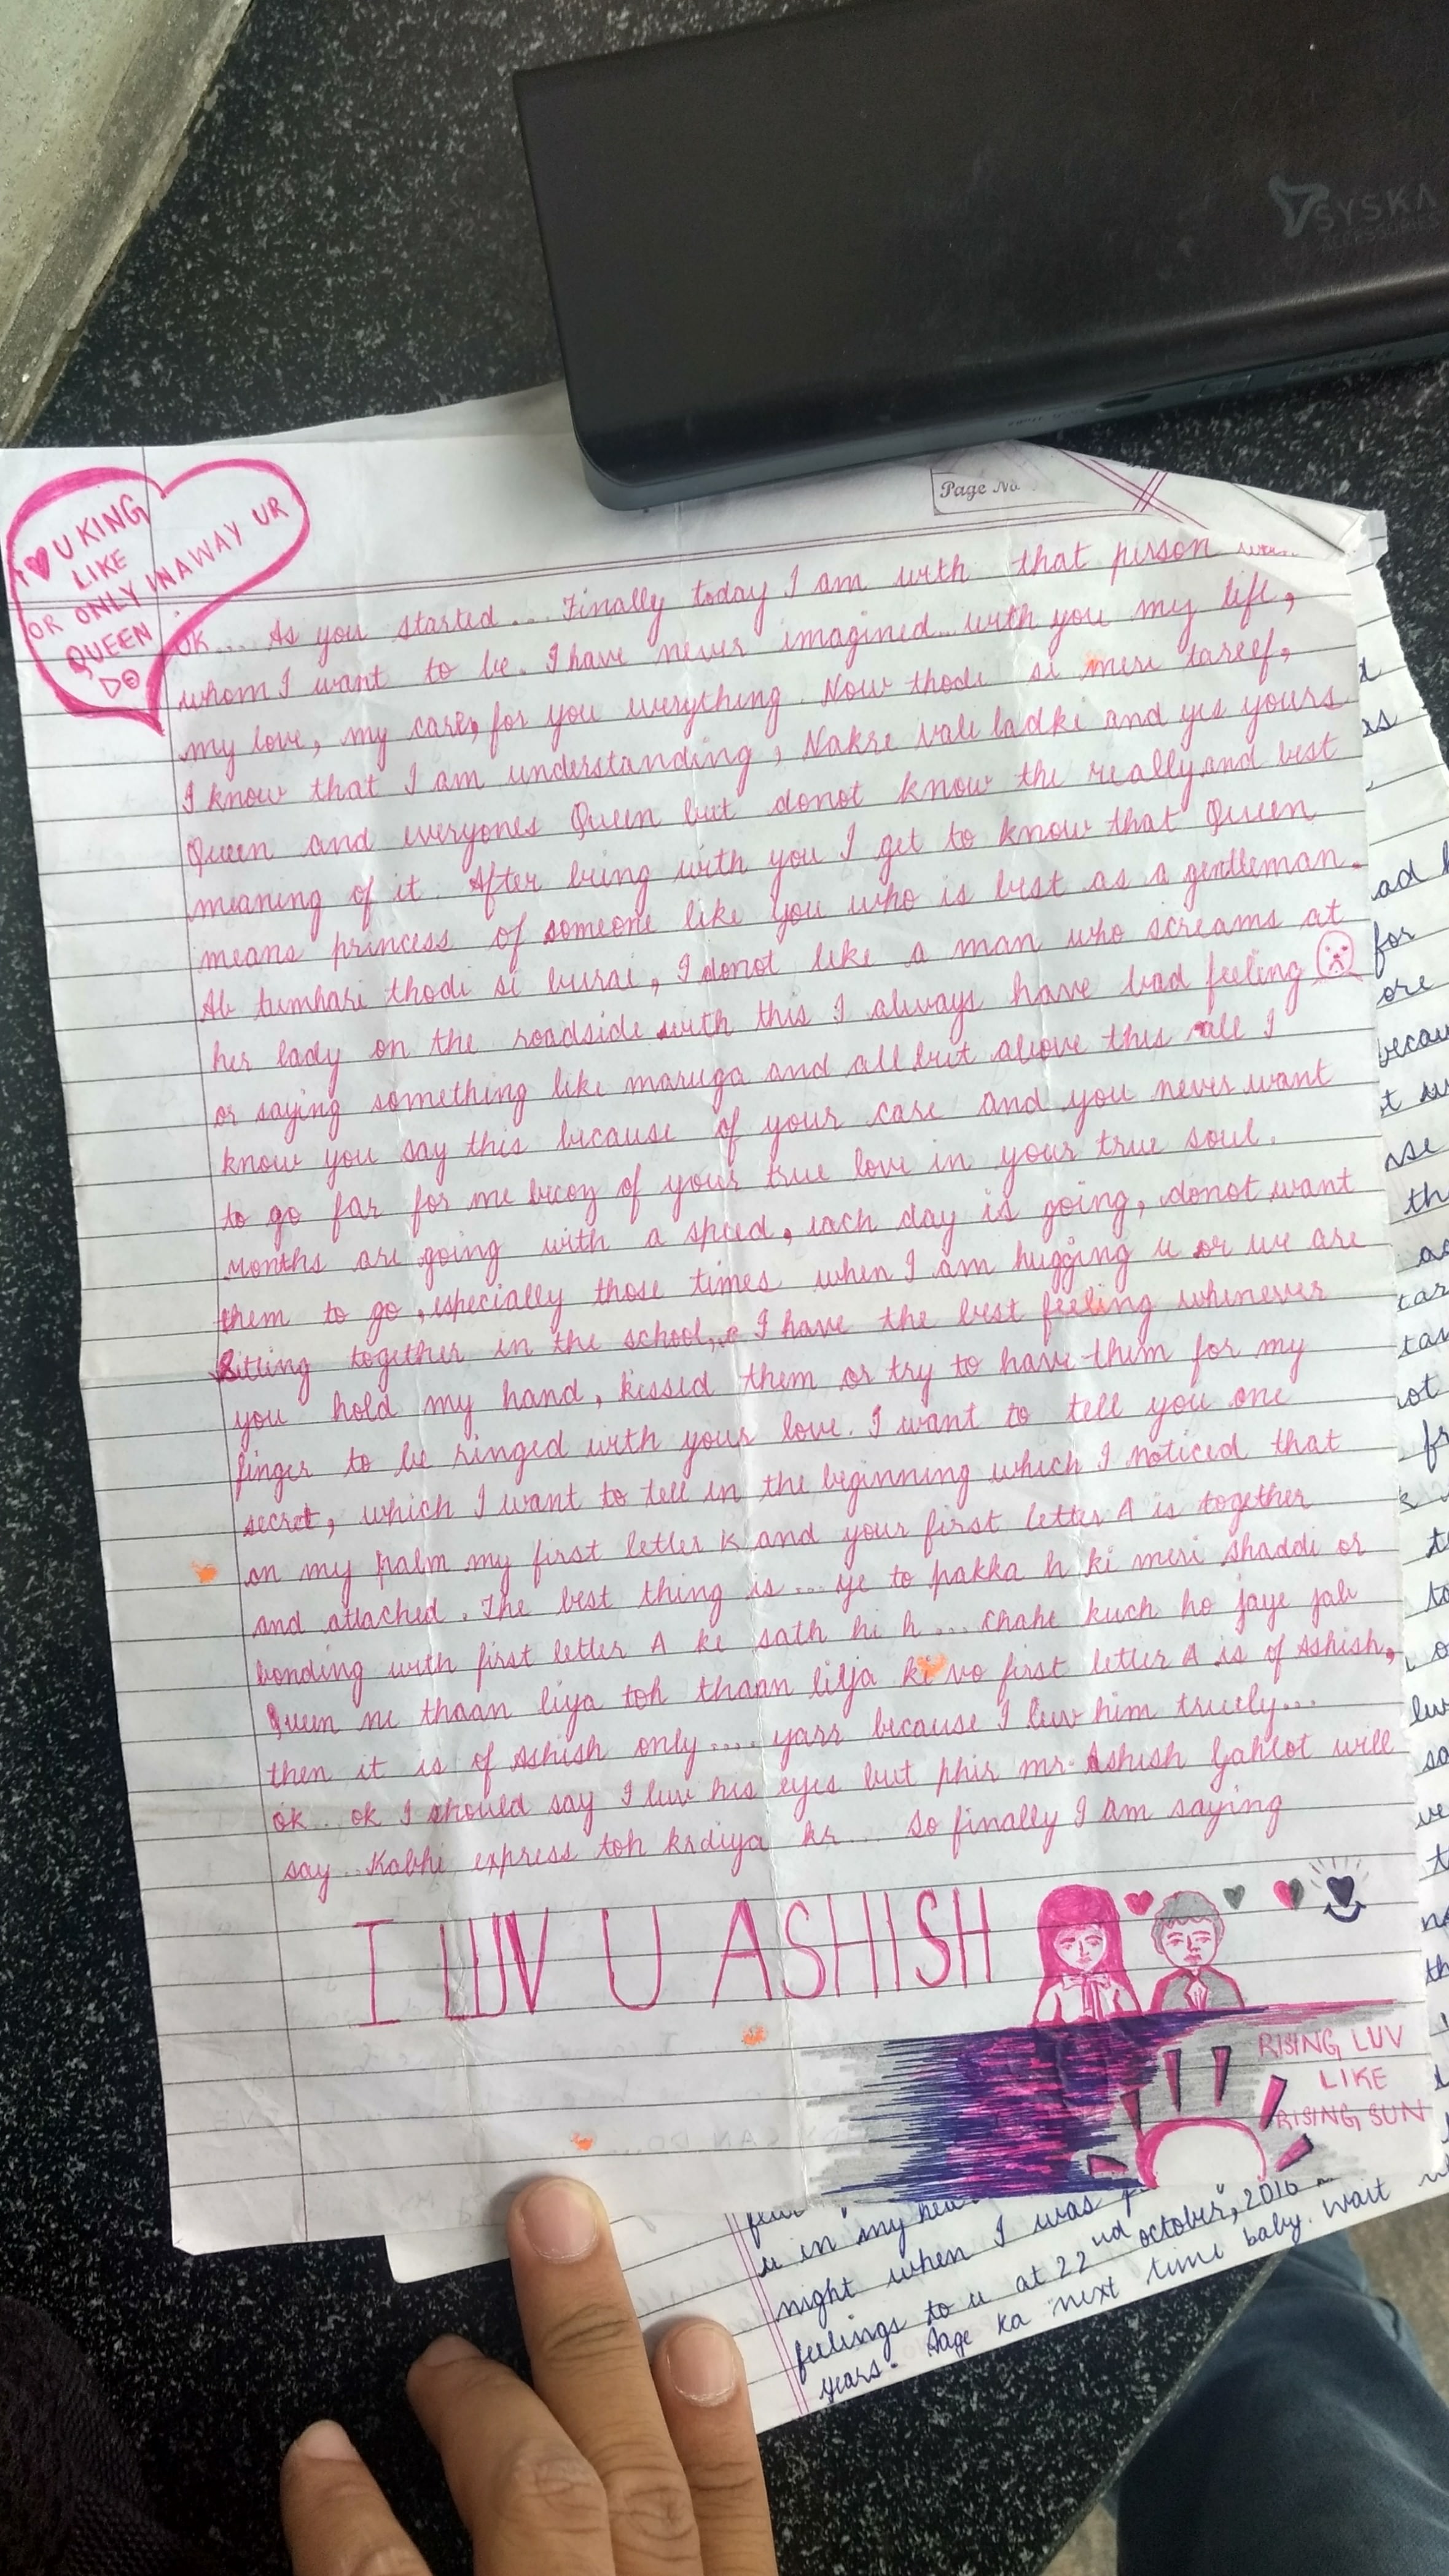 SYSKA
ACCESSORIES
Page No
I ♥ U KING
LIKE
OR ONLY IN A WAY UR
QUEEN
DO
OK.... As you started.... Finally today I am with that person
whom I want to be. I have never imagined... with you my life,
my love, my care, for you everything. Now thodi si meri tareef,
I know that I am understanding, Nakre vali ladki and yes yours
Queen and everyones Queen but donot know the really and best
meaning of it. After being with you I get to know that Queen
means princess of someone like you who is best as a gentleman.
Ab tumhari thodi si burai, I donot like a man who screams at
her lady on the roadside with this I always have bad feeling
or saying something like maruga and all but above this all I
know you say this because of your care and you never want
to go far for me becoz of your true love in your true soul.
Months are going with a speed, each day is going, donot want
them to go, especially those times when I am hugging u or we are
sitting together in the school,.. I have the best feeling whenever
you hold my hand, kissed them or try to have them for my
finger to be ringed with your love. I want to tell you one
secret, which I want to tell in the beginning which I noticed that
on my palm my first letter K and your first letter A is together
and attached. The best thing is .... ye to pakka h ki meri shaddi or
bonding with first letter A ke sath hi h .... chahe kuch ho jaye jab
Queen ne thaan liya toh thaan liya ki vo first letter A is of Ashish,
then it is of Ashish only .... yarr because I luv him truely...
ok... ok I should say I luv his eyes but phir mr. Ashish Gahlot will
say.. Kabhi express toh krdiya kr... so finally I am saying
I LUV U ASHISH
RISING LUV
LIKE
RISING SUN
u in "my
night when I was
feelings to u at 22nd october", 2016
years. Aage ka next time baby. Wait